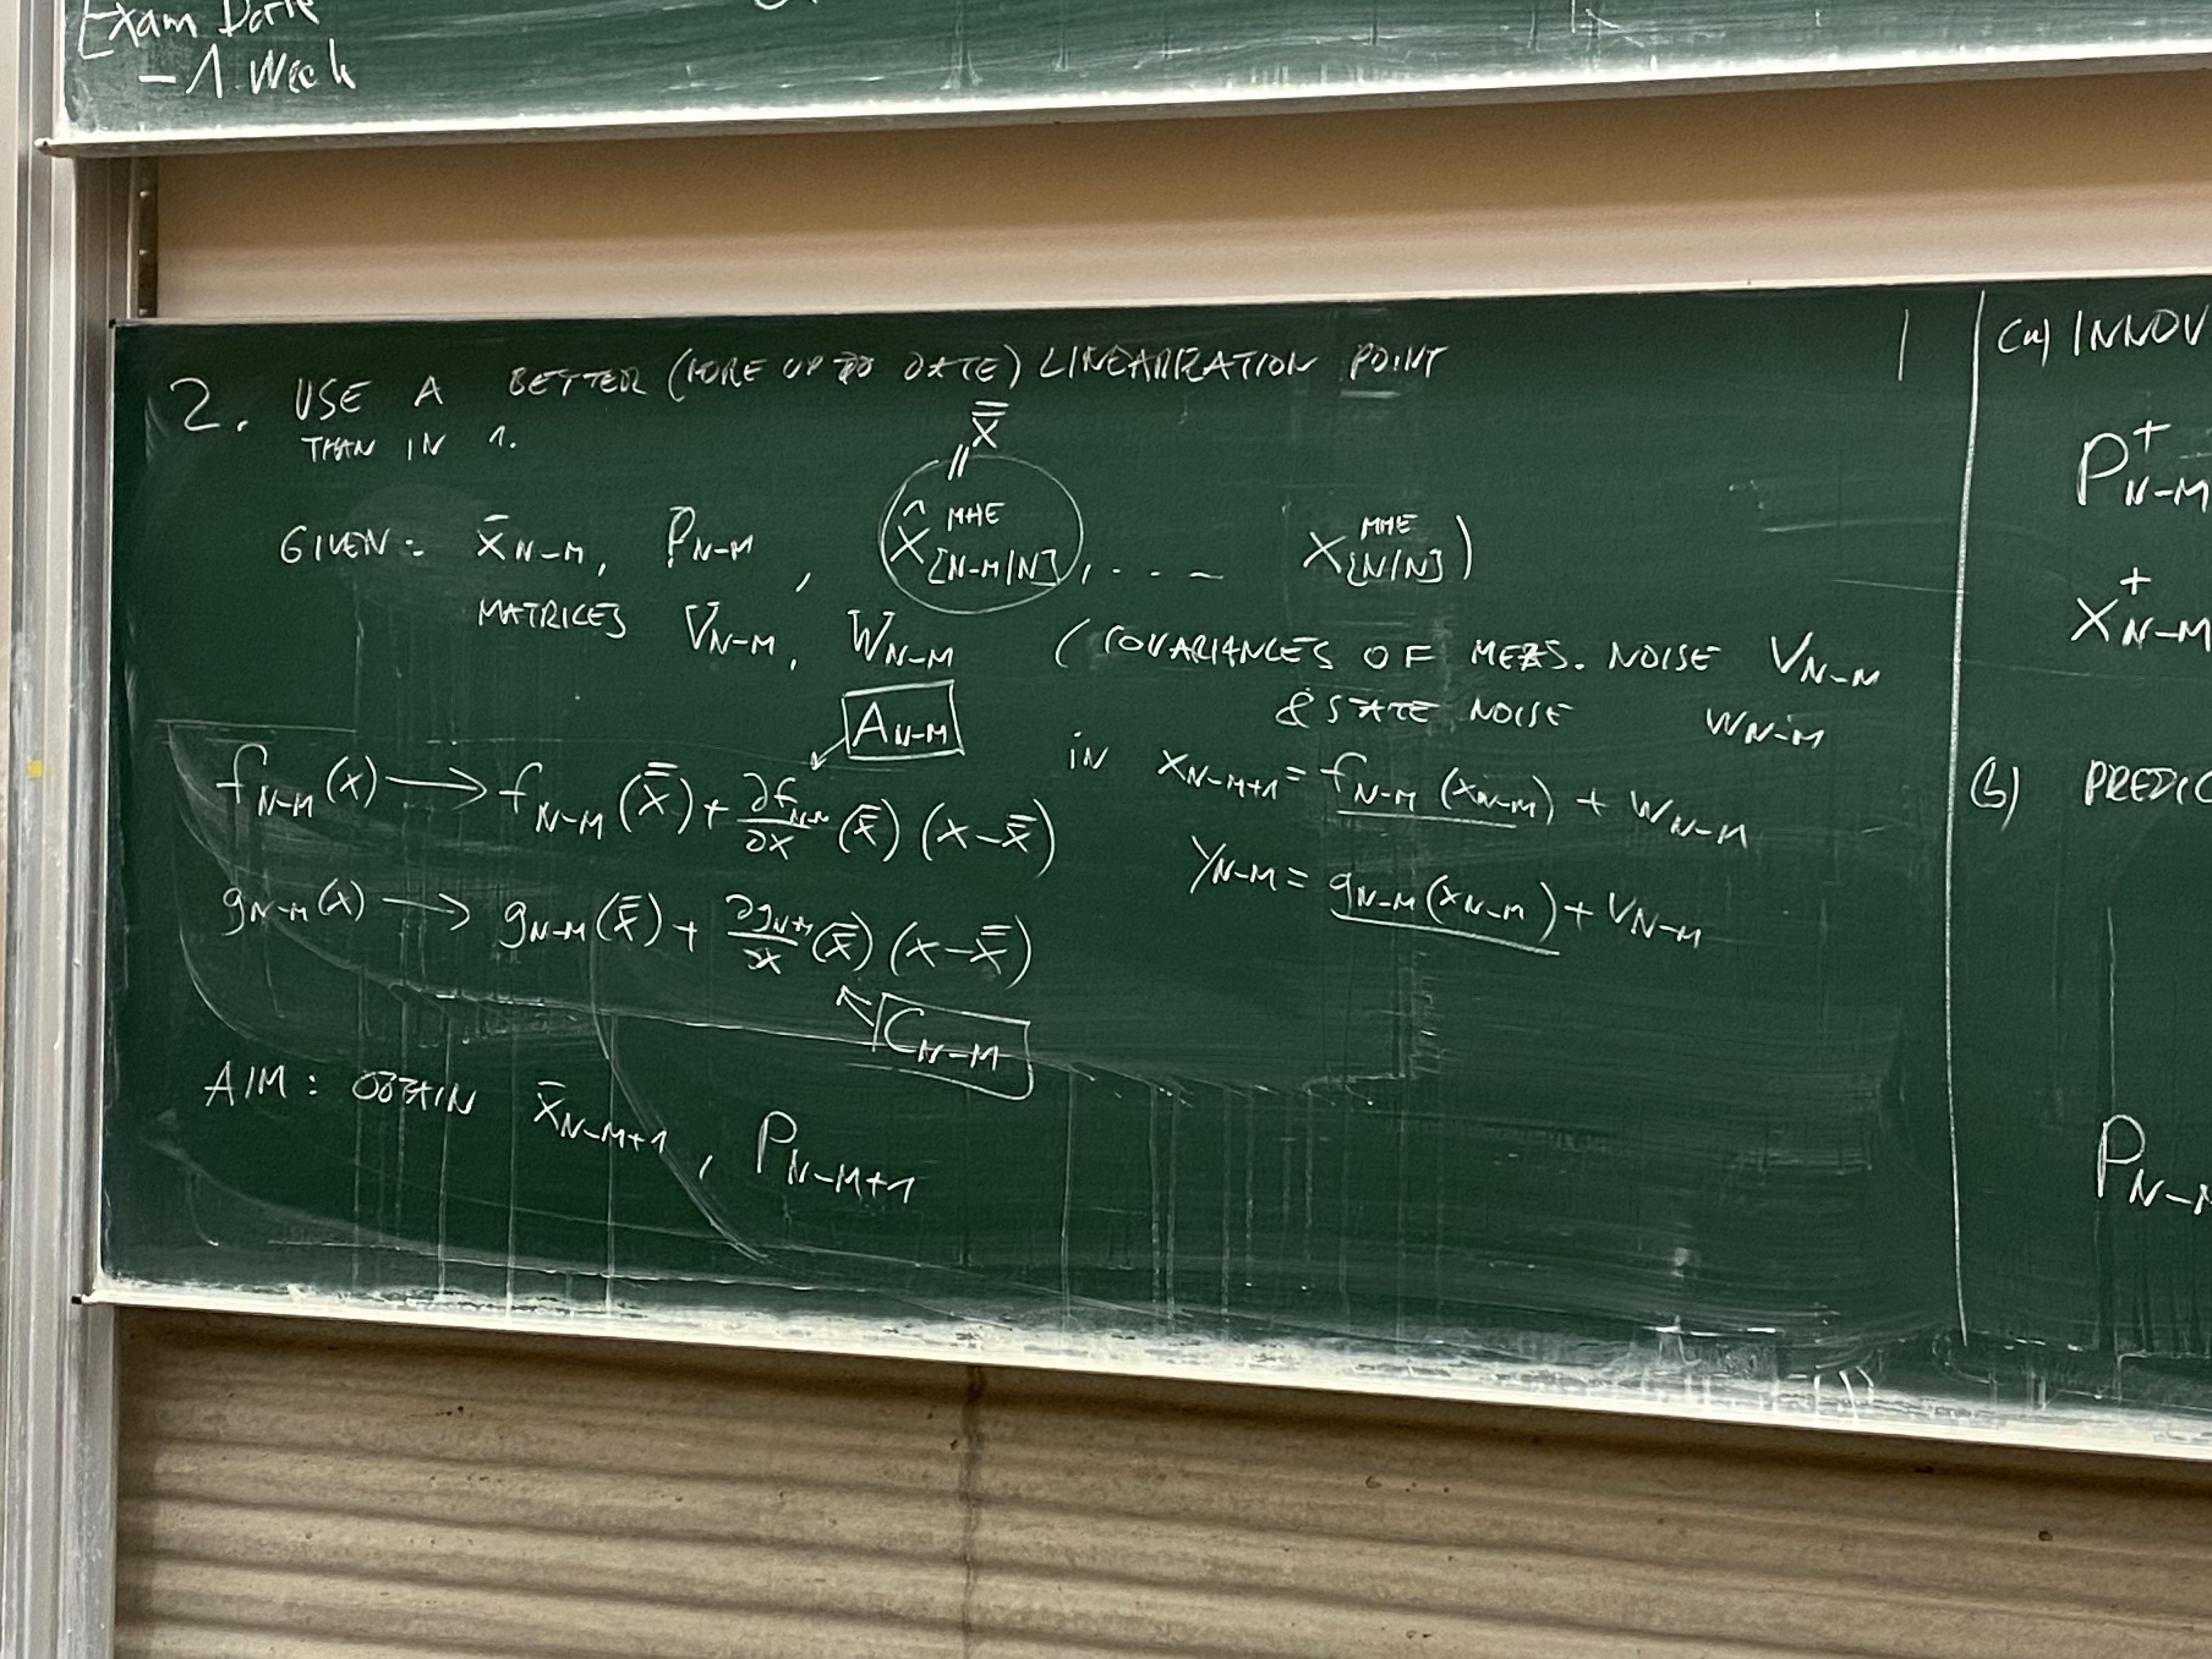 Exam Date
– 1. Week
2. USE A BETTER (MORE UP TO DATE) LINEARIZATION POINT
THAN IN 1.
x̿
||
GIVEN: x̄_{N-M}, P_{N-M}, x̂^{MHE}_{[N-M|N]}, . . . – x^{MHE}_{[N|N]})
MATRICES V_{N-M}, W_{N-M} (COVARIANCES OF MEAS. NOISE V_{N-M}
& STATE NOISE w_{N-M}
A_{N-M}
in x_{N-M+1} = f_{N-M}(x_{N-M}) + w_{N-M}
f_{N-M}(x) → f_{N-M}(x̿) + ∂f_{N-M}/∂x (x̿) (x-x̿)
y_{N-M} = g_{N-M}(x_{N-M}) + v_{N-M}
g_{N-M}(x) → g_{N-M}(x̿) + ∂g_{N-M}/∂x (x̿) (x-x̿)
C_{N-M}
AIM: OBTAIN x̄_{N-M+1}, P_{N-M+1}
(a) INNOV
P^+_{N-M}
x^+_{N-M}
(b) PREDIC
P_{N-M